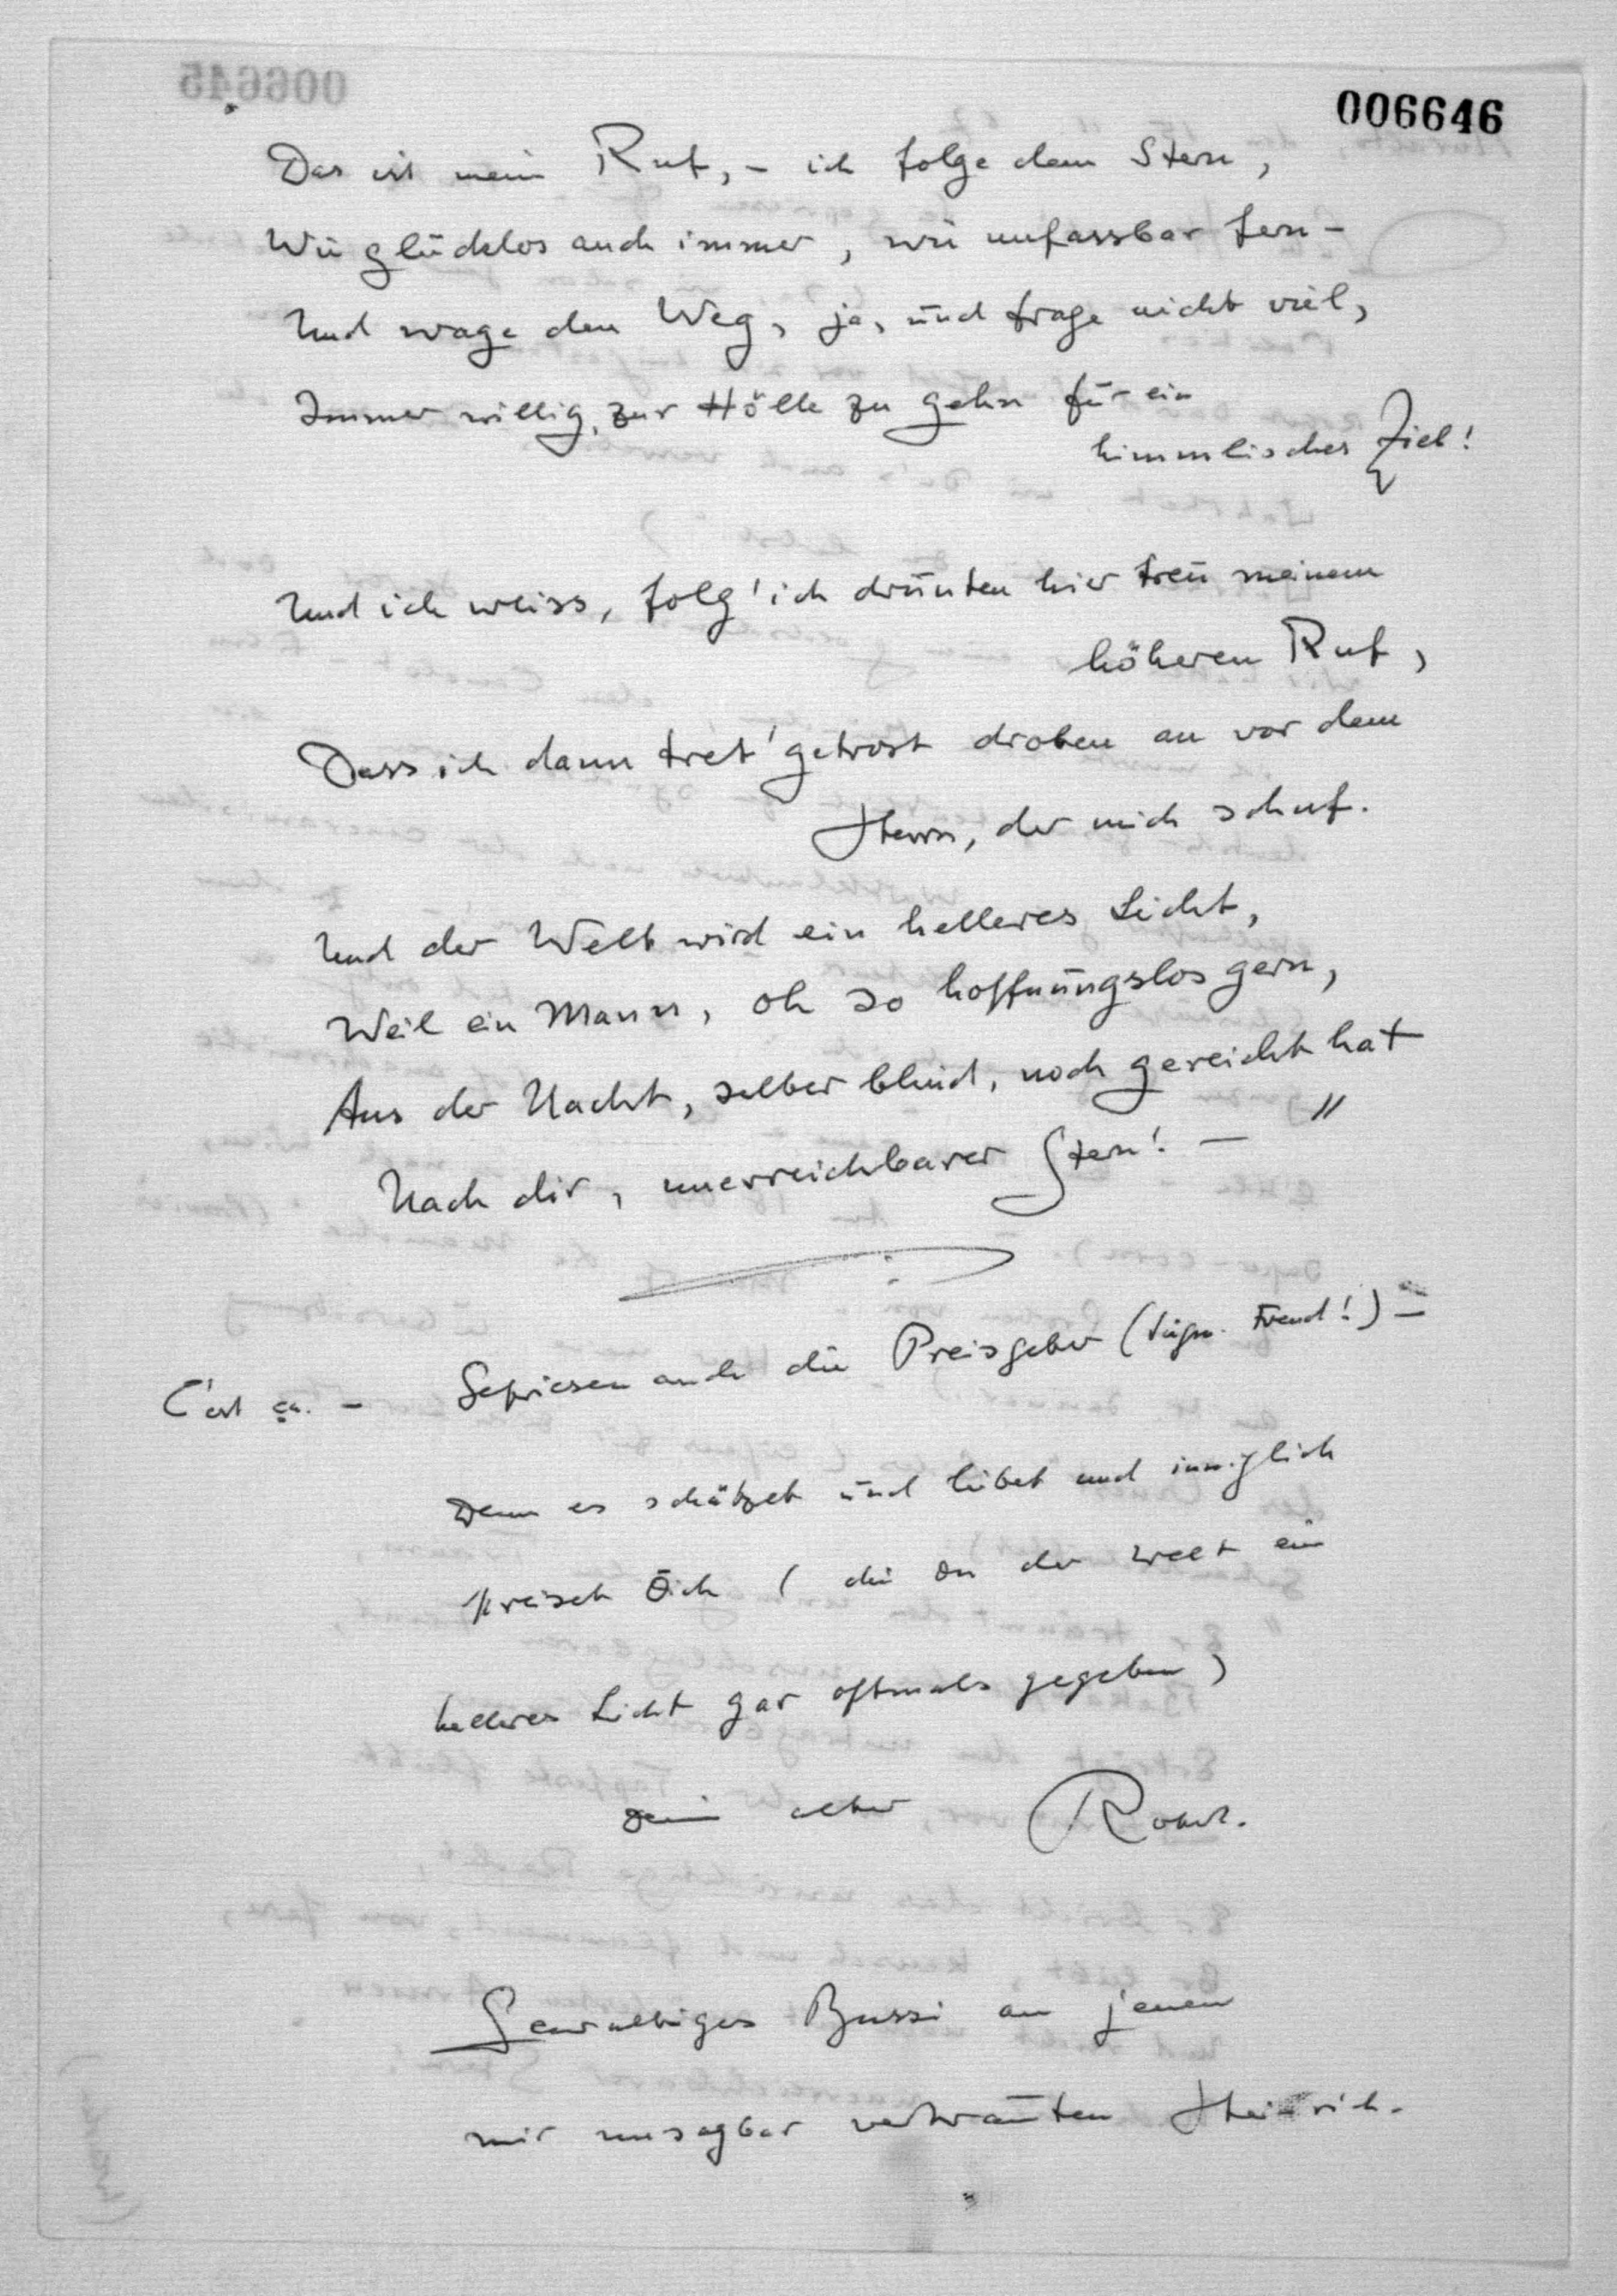 006646
Das ist mein Ruf, – ich folge dem Stern,
Wie glücklos auch immer, wie unfassbar fern –
Und wage den Weg, ja, und frage nicht viel,
Immer willig, zur Hölle zu gehn für ein
himmlisches Ziel!
Und ich weiss, folg' ich drunten hier treu meinem
höheren Ruf,
Dass ich dann tret' getrost droben an vor dem
Herrn, der mich schuf.
Und der Welt wird ein helleres Licht,
Weil ein Mann, oh so hoffnungslos gern,
Aus der Nacht, selber blind, noch gereicht hat
Nach dir, unerreichbarer Stern! – "
C'est ça. – Gepriesen auch die Preisgeber (Sigm. Freud!) –
Denn es schätzet und liebet und inniglich
preiset Dich (die Du der Welt ein
helleres Licht gar oftmals gegeben)
Dein alter
Gewaltiges Bussi an jenen
mir unsagbar vertrauten Heinrich.